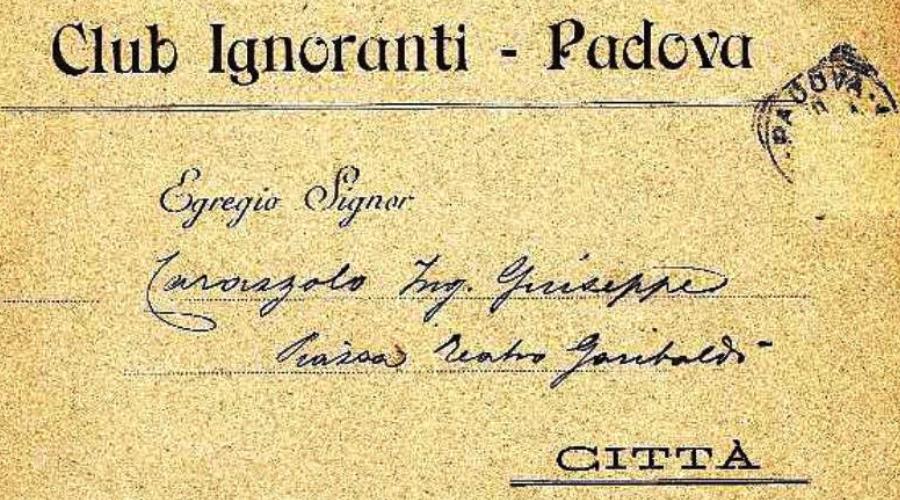 Club Ignoranti - Padova
PADOVA
Egregio Signor
Carazzolo Ing. Giuseppe
Piazza Teatro Garibaldi
CITTÀ